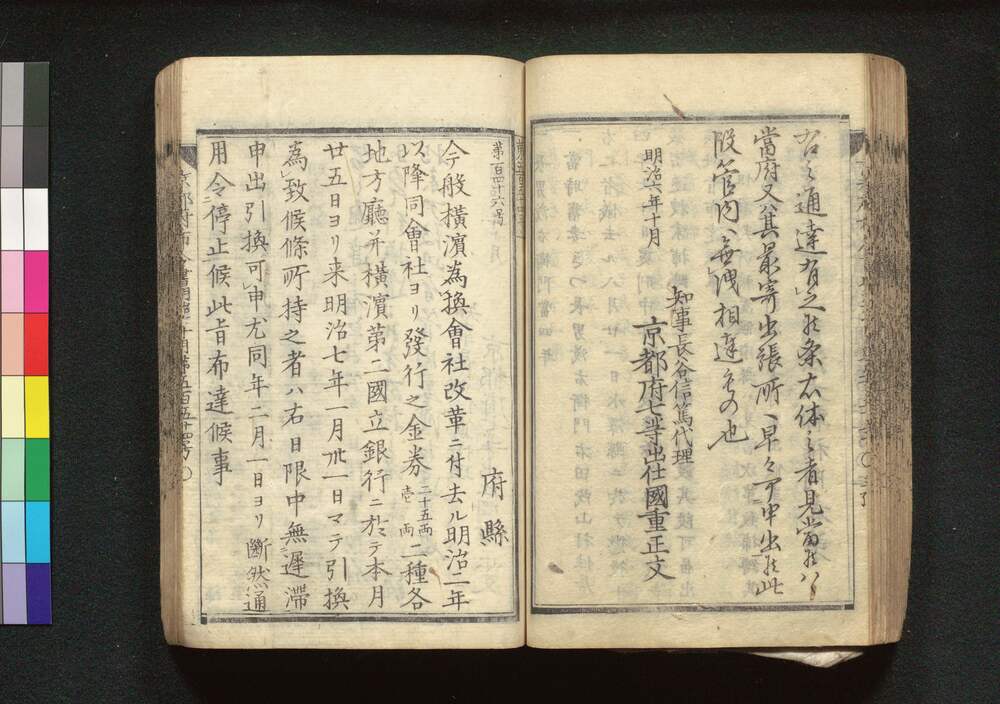 右之通達有之候条右体之者見當候ハヽ
當府又ハ其最寄出張所ヘ早々可申出候此
段管内ヘ無洩相達るもの也
明治六年十月
知事長谷信篤代理
京都府七等出仕國重正文
第一百四十六号
府縣
今般横濱為換會社改革ニ付去ル明治二年
以降同會社ヨリ發行之金券二十五両壱両二種各
地方廳并横濱第二國立銀行ニ於テ本月
廿五日ヨリ来明治七年一月卅一日マテ引換
為致候條所持之者ハ右日限中無遲滞
申出引換可申尤同年二月一日ヨリ斷然通
用令停止候此旨布達候事
京都府布令書明治六年十月第五百五十四号